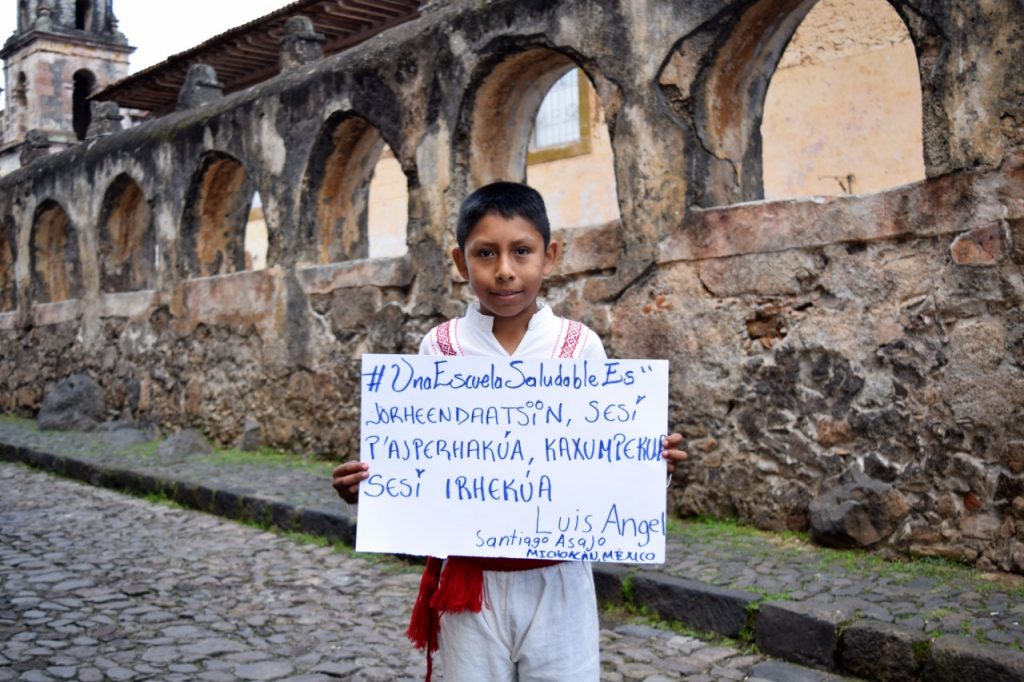 #UnaEscuelaSaludableEs"
JORHEENDAATSÏIN, SESÏ
P'ASPERHAKÚA, KAXUMPEKUA
SESÏ IRHEKÚA
Luis Angel
Santiago Asajo
MICHOACÁN, MÉXICO